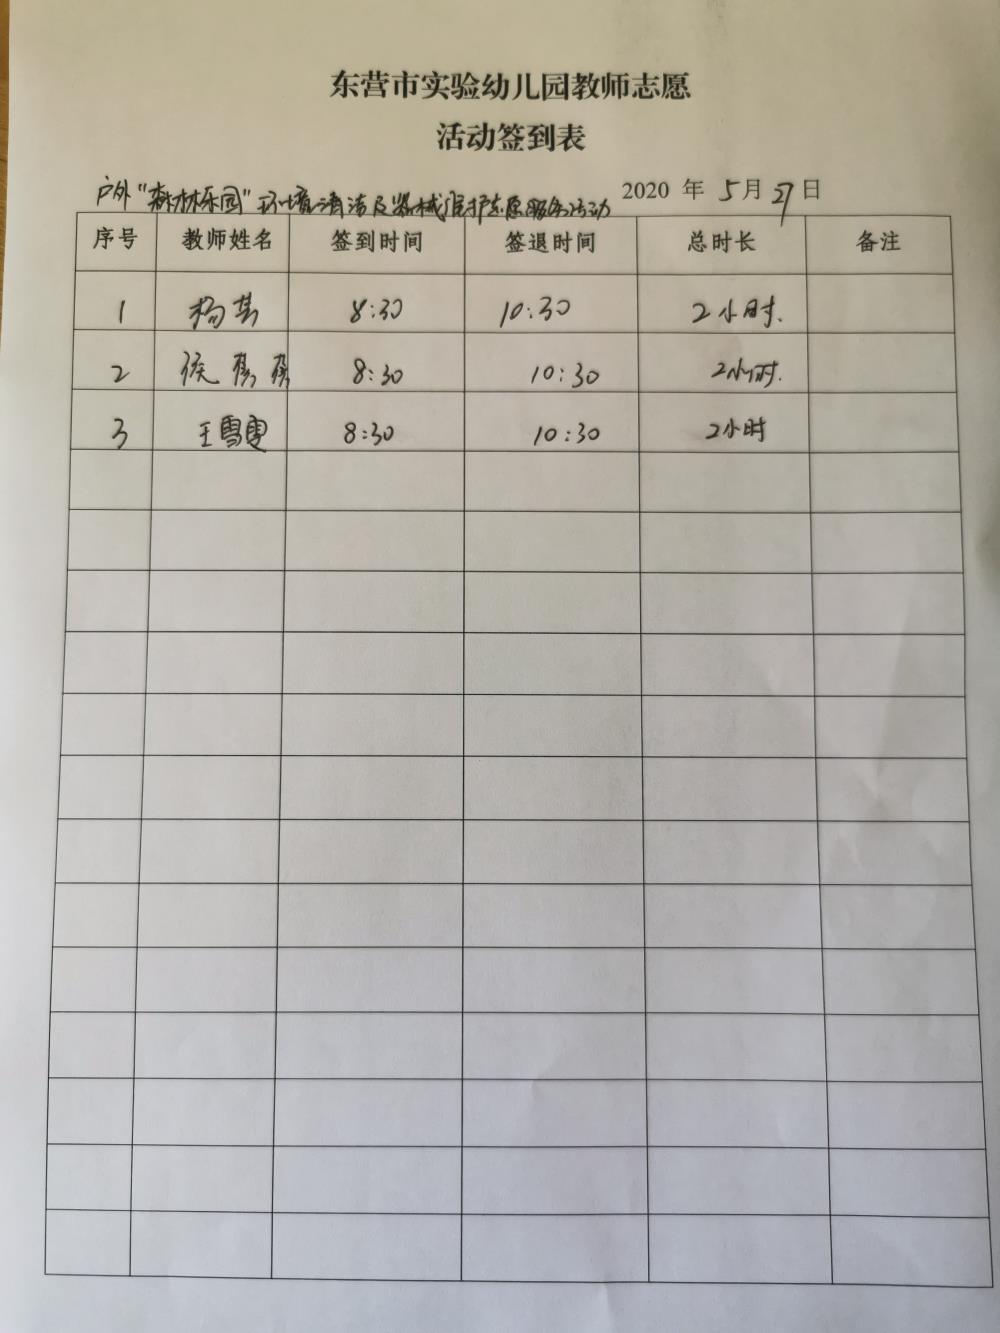 东营市实验幼儿园教师志愿
活动签到表
户外“森林乐园”环境清洁及器械维护志愿服务活动 2020 年 5月27日
序号 教师姓名 签到时间 签退时间 总时长 备注
1 杨 8:30 10:30 2小时.
2 侯 8:30 10:30 2小时.
3 王雪雯 8:30 10:30 2小时